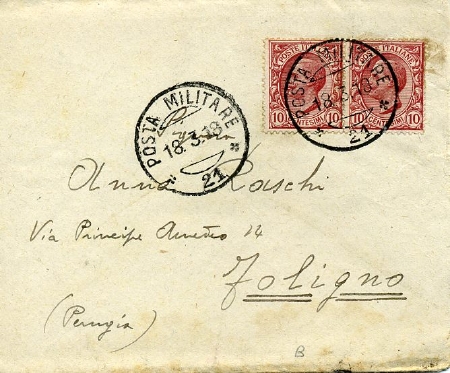 POSTE ITALIANE
10 CENTESIMI 10
POSTE ITALIANE
10 CENTESIMI 10
POSTA MILITARE
18.3.18
* 21 *
POSTA MILITARE
18.3.18
* 21 *
Anna Raschi
Via Principe Amedeo 14
Foligno
(Perugia)
B